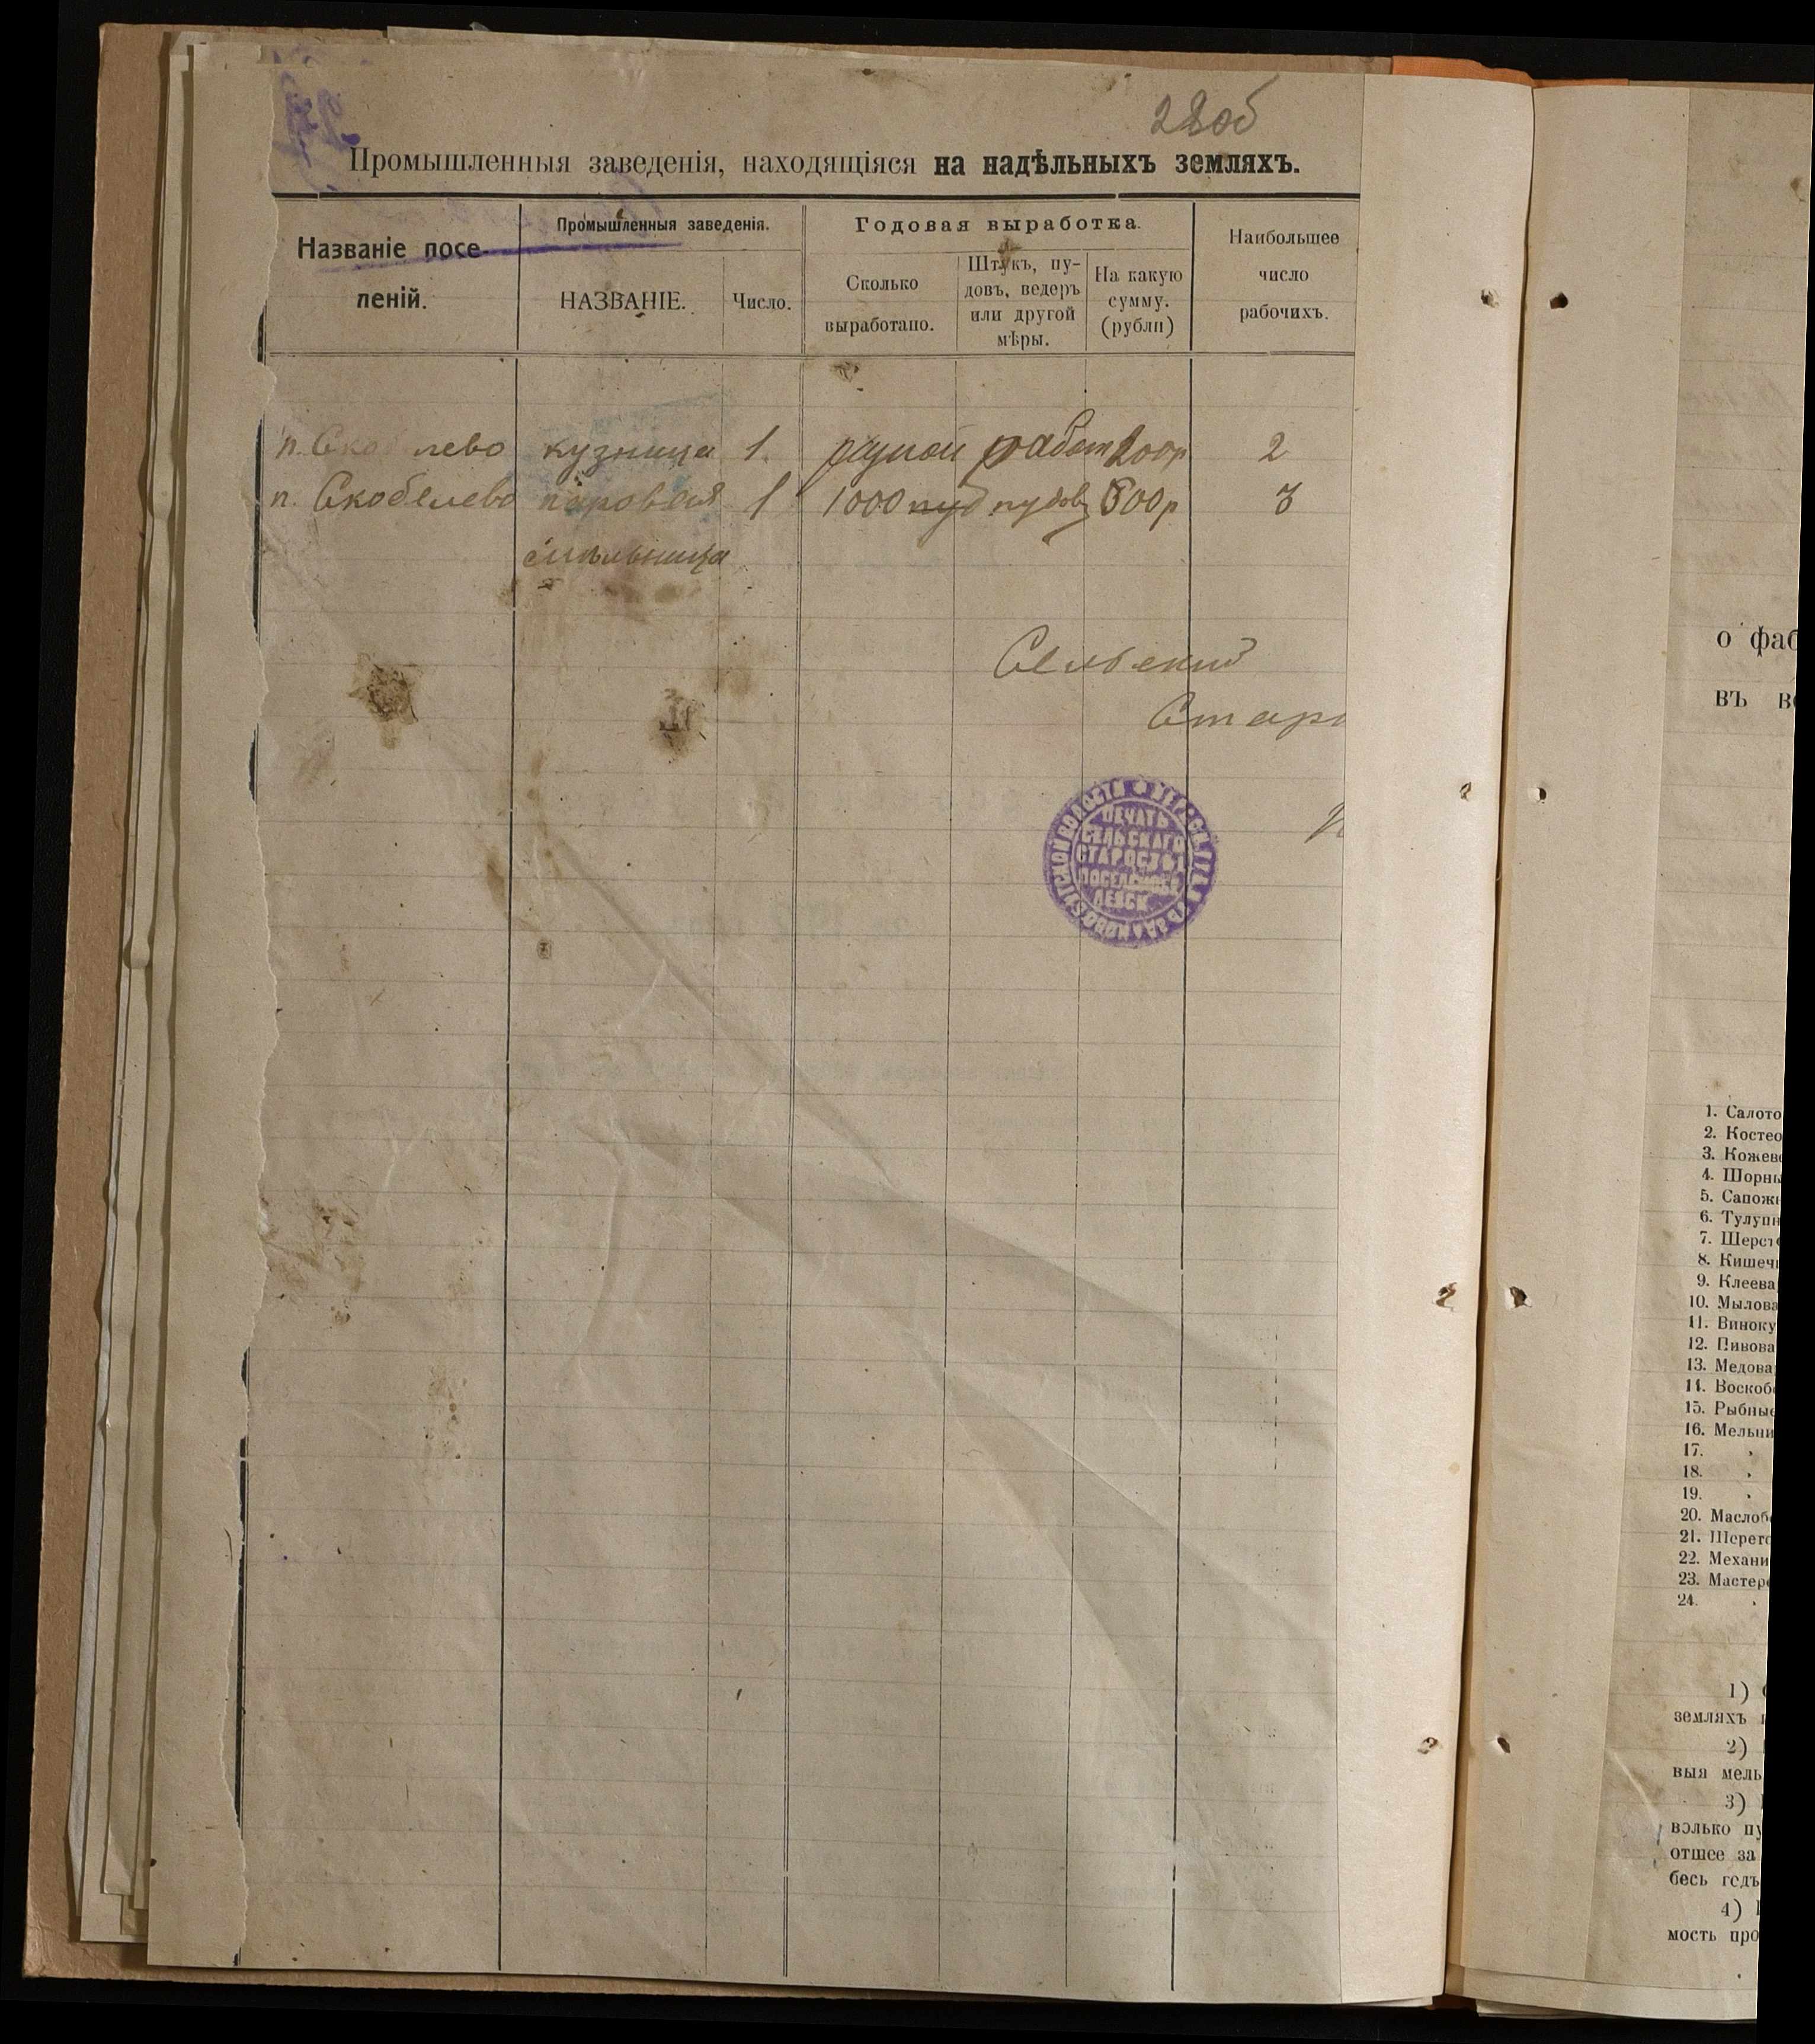 28об
Промышленныя заведенія, находящіяся на надѣльныхъ земляхъ.
Названіе посе-
леній.
Промышленныя заведенія.
НАЗВАНІЕ.
Число.
Годовая выработка.
Сколько
выработано.
Штукъ, пу-
довъ, ведеръ
или другой
мѣры.
На какую
сумму.
(рубли)
Наибольшее
число
рабочихъ.
п. Скобелево кузница 1. разной работ 200р 2
п. Скобелево паровая 1 1000 пуд пудовъ 500р 3
мельница
Сельский
Старо
ПЕЧАТЬ
СЕЛЬСКАГО
СТАРОСТЫ
о фаб
въ во
1. Салото
2. Костео
3. Кожеве
4. Шорны
5. Сапожн
6. Тулупн
7. Шерсто
8. Кишечн
9. Клеева
10. Мылова
11. Виноку
12. Пивова
13. Медова
14. Воскобо
15. Рыбные
16. Мельни
17.
18.
19.
20. Маслобо
21. Шерето
22. Механи
23. Мастере
24.
1)
земляхъ
2)
выя мель
3)
волько пу
отшее за
бесь годъ
4)
мость про